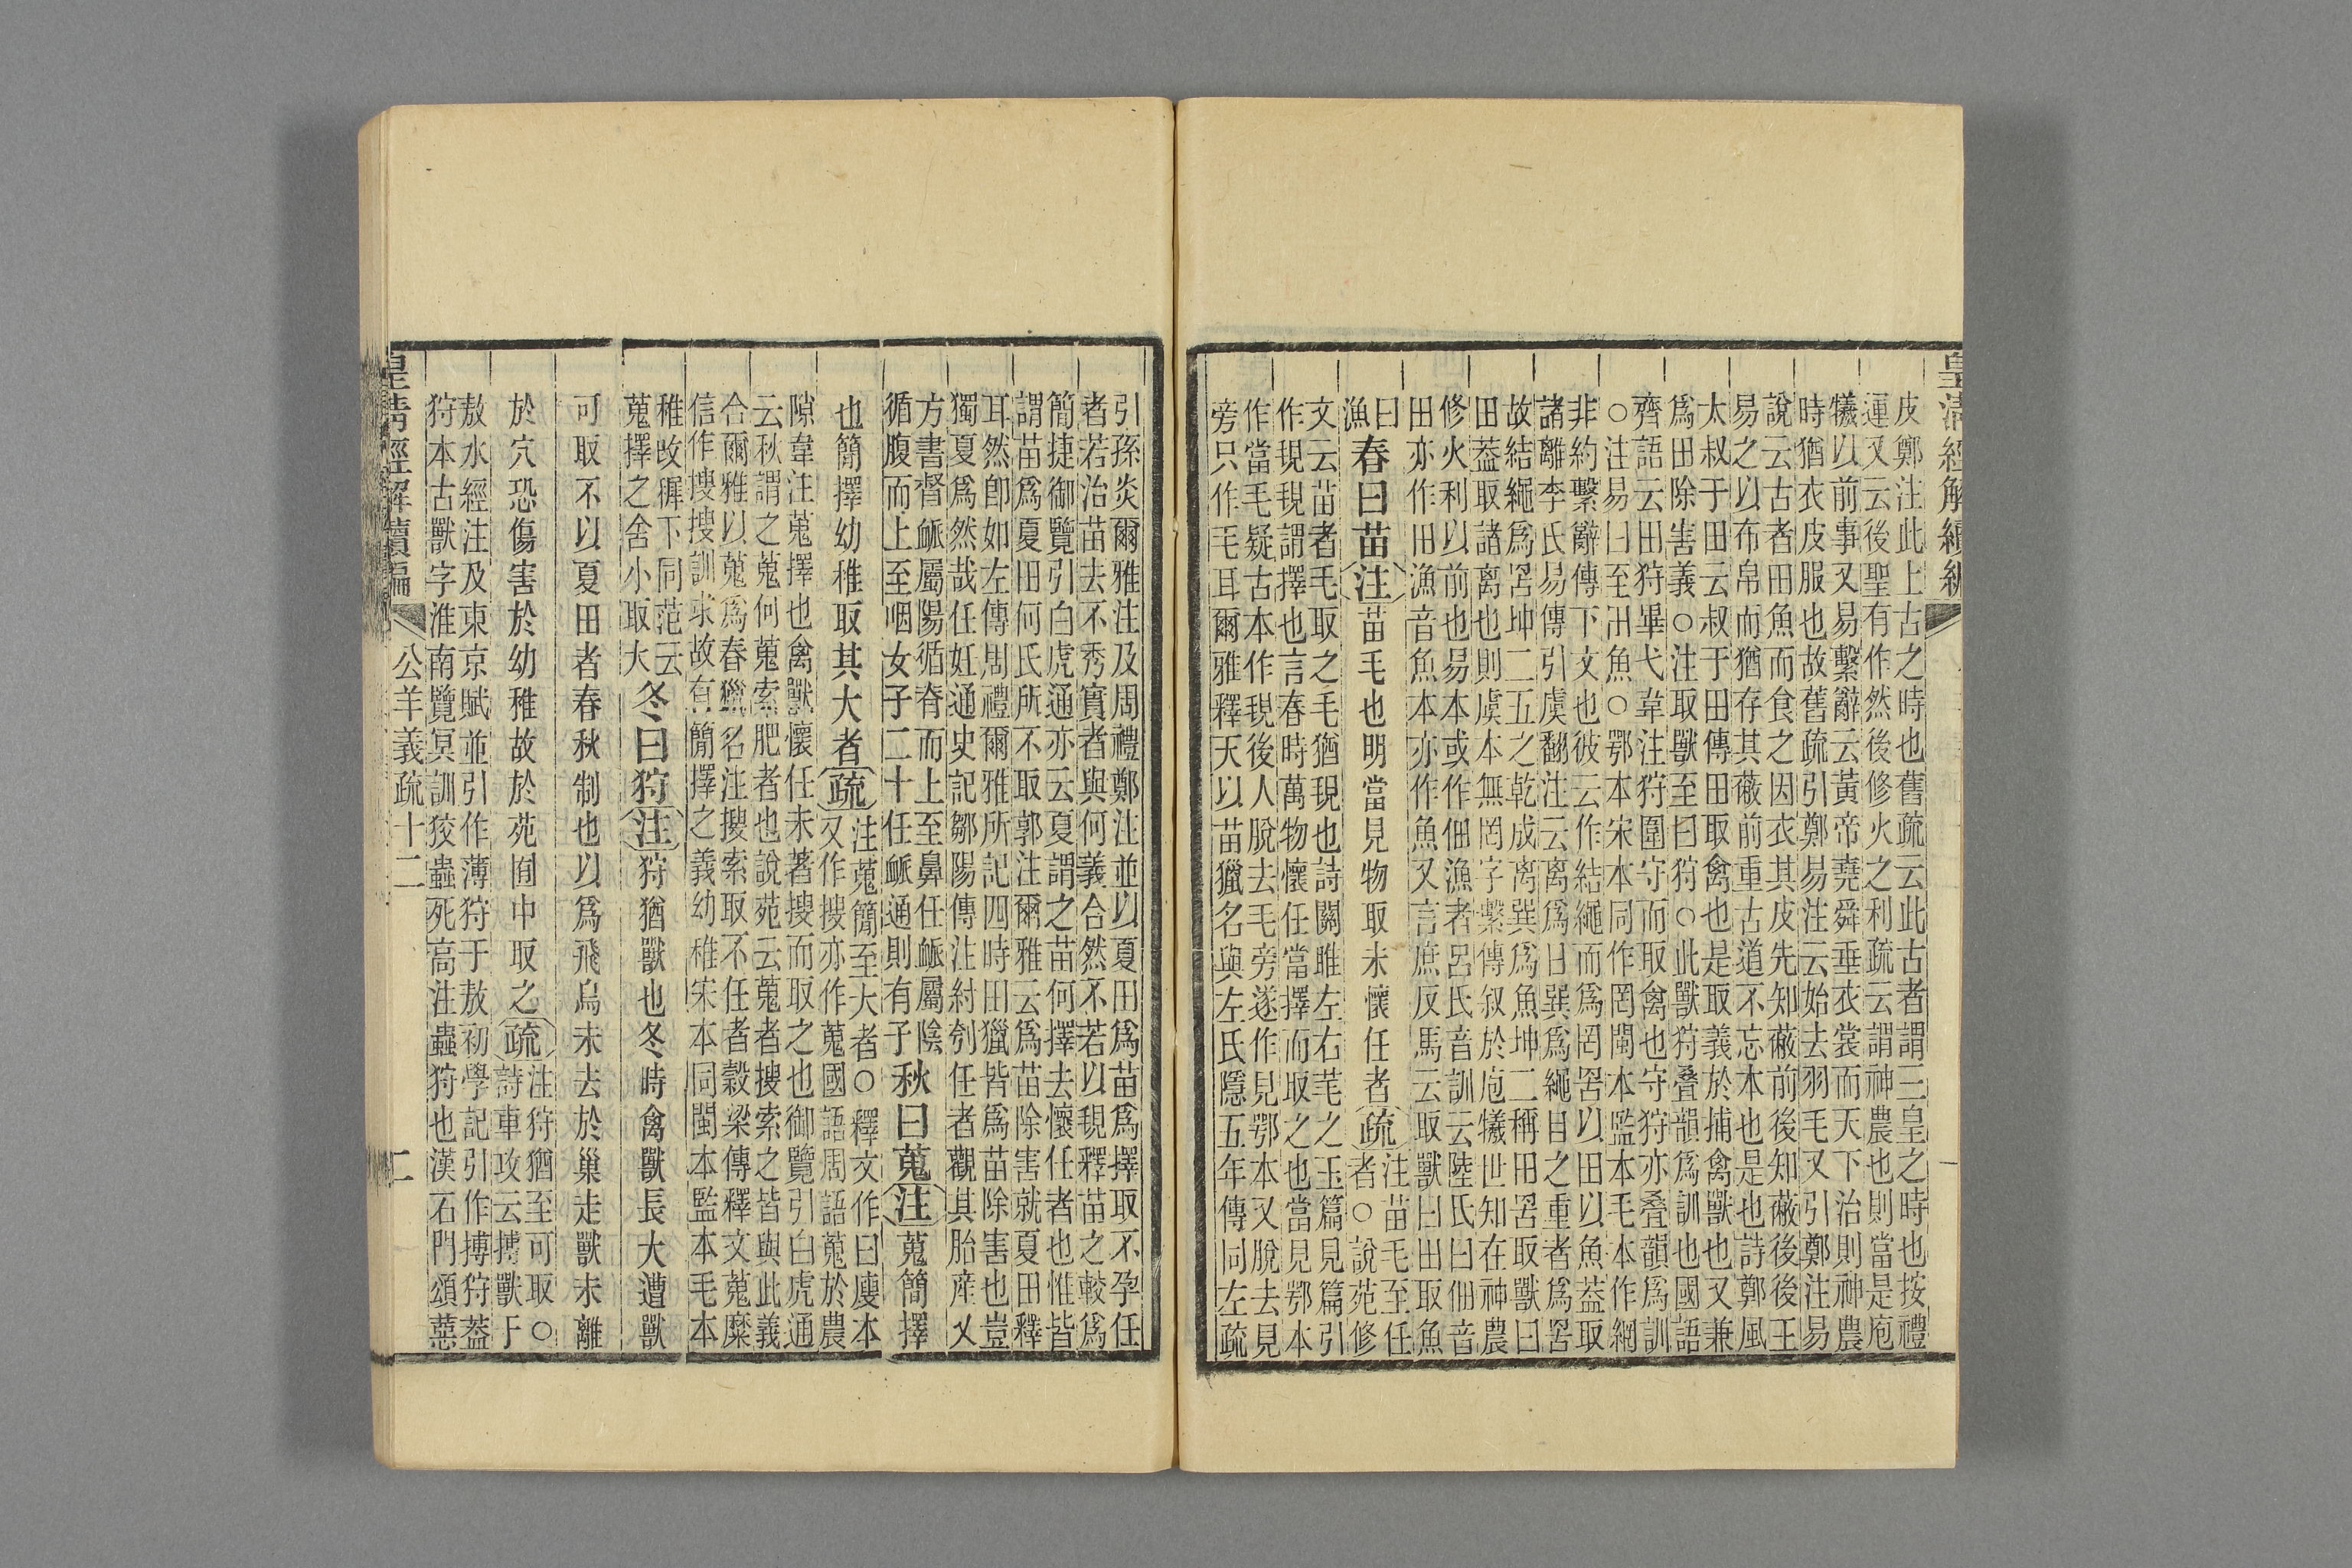 皇清經解續編
皮鄭注此上古之時也舊疏云此古者謂三皇之時也按禮
運又云後聖有作然後修火之利疏云謂神農也則當是庖
犧以前事又易繫辭云黃帝堯舜垂衣裳而天下治則神農
時猶衣皮服也故舊疏引鄭易注云始去羽毛又引鄭注易
說云古者田魚而食之因衣其皮先知蔽前後知蔽後後王
易之以布帛而猶存其蔽前重古道不忘本也是也詩鄭風
太叔于田云叔于田傳田取禽也是取義於捕禽獸也又兼
爲田除害義○注取獸至曰狩○此獸狩叠韻爲訓也國語
齊語云田狩畢弋韋注狩圍守而取禽也守狩亦叠韻爲訓
○注易曰至田魚○鄂本宋本同作罔閩本監本毛本作網
非約繫辭傳下文也彼云作結繩而爲罔罟以田以魚蓋取
諸離李氏易傳引虞翻注云离爲目巽爲繩目之重者爲罟
故結繩爲罟坤二五之乾成离巽爲魚坤二稱田罟取獸曰
田蓋取諸离也則虞本無罔字繫傳叙於庖犧世知在神農
修火利以前也易本或作佃漁者呂氏音訓云陸氏曰佃音
田亦作田漁音魚本亦作魚又言庶反馬云取獸曰田取魚
曰漁春曰苗注苗毛也明當見物取未懷任者疏注苗毛至任者○說苑修
文云苗者毛取之毛猶覒也詩關雎左右芼之玉篇見篇引
作覒覒謂擇也言春時萬物懷任當擇而取之也當見鄂本
作當毛疑古本作覒後人脫去毛旁遂作見鄂本又脫去見
旁只作毛耳爾雅釋天以苗獵名與左氏隱五年傳同左疏
引孫炎爾雅注及周禮鄭注並以夏田爲苗爲擇取不孕任
者若治苗去不秀實者與何義合然不若以覒釋苗之較爲
簡捷御覽引白虎通亦云夏謂之苗何擇去懷任者也惟皆
謂苗爲夏田何氏所不取郭注爾雅云爲苗除害就夏田釋
耳然卽如左傳周禮爾雅所記四時田獵皆爲苗除害也豈
獨夏爲然哉任妊通史記鄒陽傳注紂刳任者觀其胎産乂
方書督衇屬陽循脊而上至鼻任衇屬陰
循腹而上至咽女子二十任衇通則有子秋曰蒐注蒐簡擇
也簡擇幼稚取其大者疏注蒐簡至大者○釋文作曰廋本
又作搜亦作蒐國語周語蒐於農
隙韋注蒐擇也禽獸懷任未著搜而取之也御覽引白虎通
云秋謂之蒐何蒐索肥者也說苑云蒐者搜索之皆與此義
合爾雅以蒐爲春獵名注搜索取不任者穀梁傳釋文蒐麋
信作搜搜訓求故有簡擇之義幼稚宋本同閩本監本毛本
稚改穉下同范云
蒐擇之舍小取大冬曰狩注狩猶獸也冬時禽獸長大遭獸
可取不以夏田者春秋制也以爲飛鳥未去於巢走獸未離
於穴恐傷害於幼稚故於苑囿中取之疏注狩猶至可取○
詩車攻云搏獸于
敖水經注及東京賦並引作薄狩于敖初學記引作搏狩蓋
狩本古獸字淮南覽冥訓狡蟲死高注蟲狩也漢石門頌惡
皇清經解續編 公羊義疏十二 二